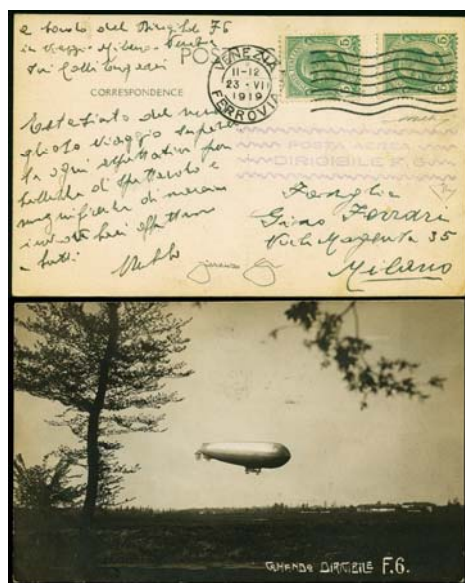 a bordo del Dirigibile F6
in viaggio Milano Venezia
sui Colli Euganei
POS
CORRESPONDENCE
VENEZIA
11-12
23 · VII
1919
FERROVIA
5 5
POSTA AEREA
DIRIGIBILE F. 6
Estasiato del mera
viglioso viaggio supera
to ogni aspettativa per
bellezza di spettacolo e
magnificenza di
baci
a tutti
Famiglia
Gino Ferrari
Viale Magenta 35
Milano
COMANDO DIRIGIBILE F.6.